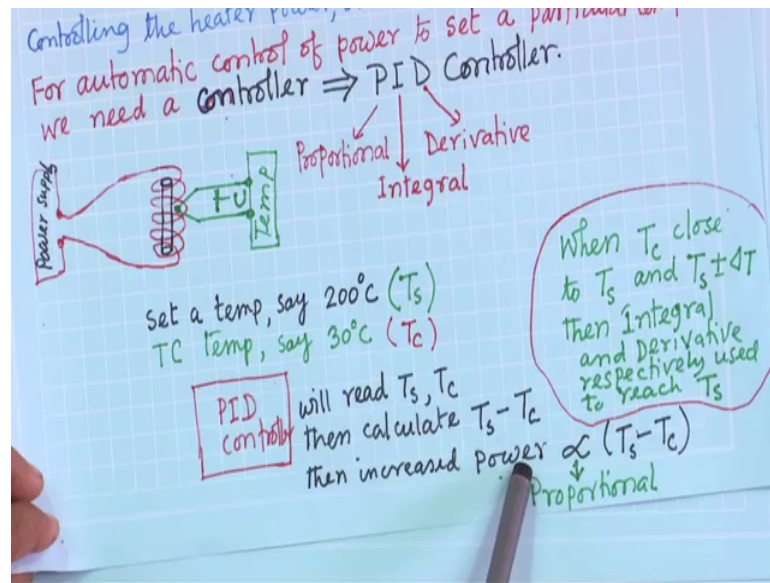 Controlling the heater power,
For automatic control of power to set a particular
we need a controller ⇒ PID Controller.
Proportional
Integral
Derivative
Power supply
TC
Temp
set a temp, say 200°C (Ts)
TC Temp, say 30°C (Tc)
PID
controller
will read Ts, Tc
then calculate Ts-Tc
then increased power ∝ (Ts-Tc)
Proportional
When Tc close
to Ts and Ts±ΔT
then Integral
and Derivative
respectively used
to reach Ts